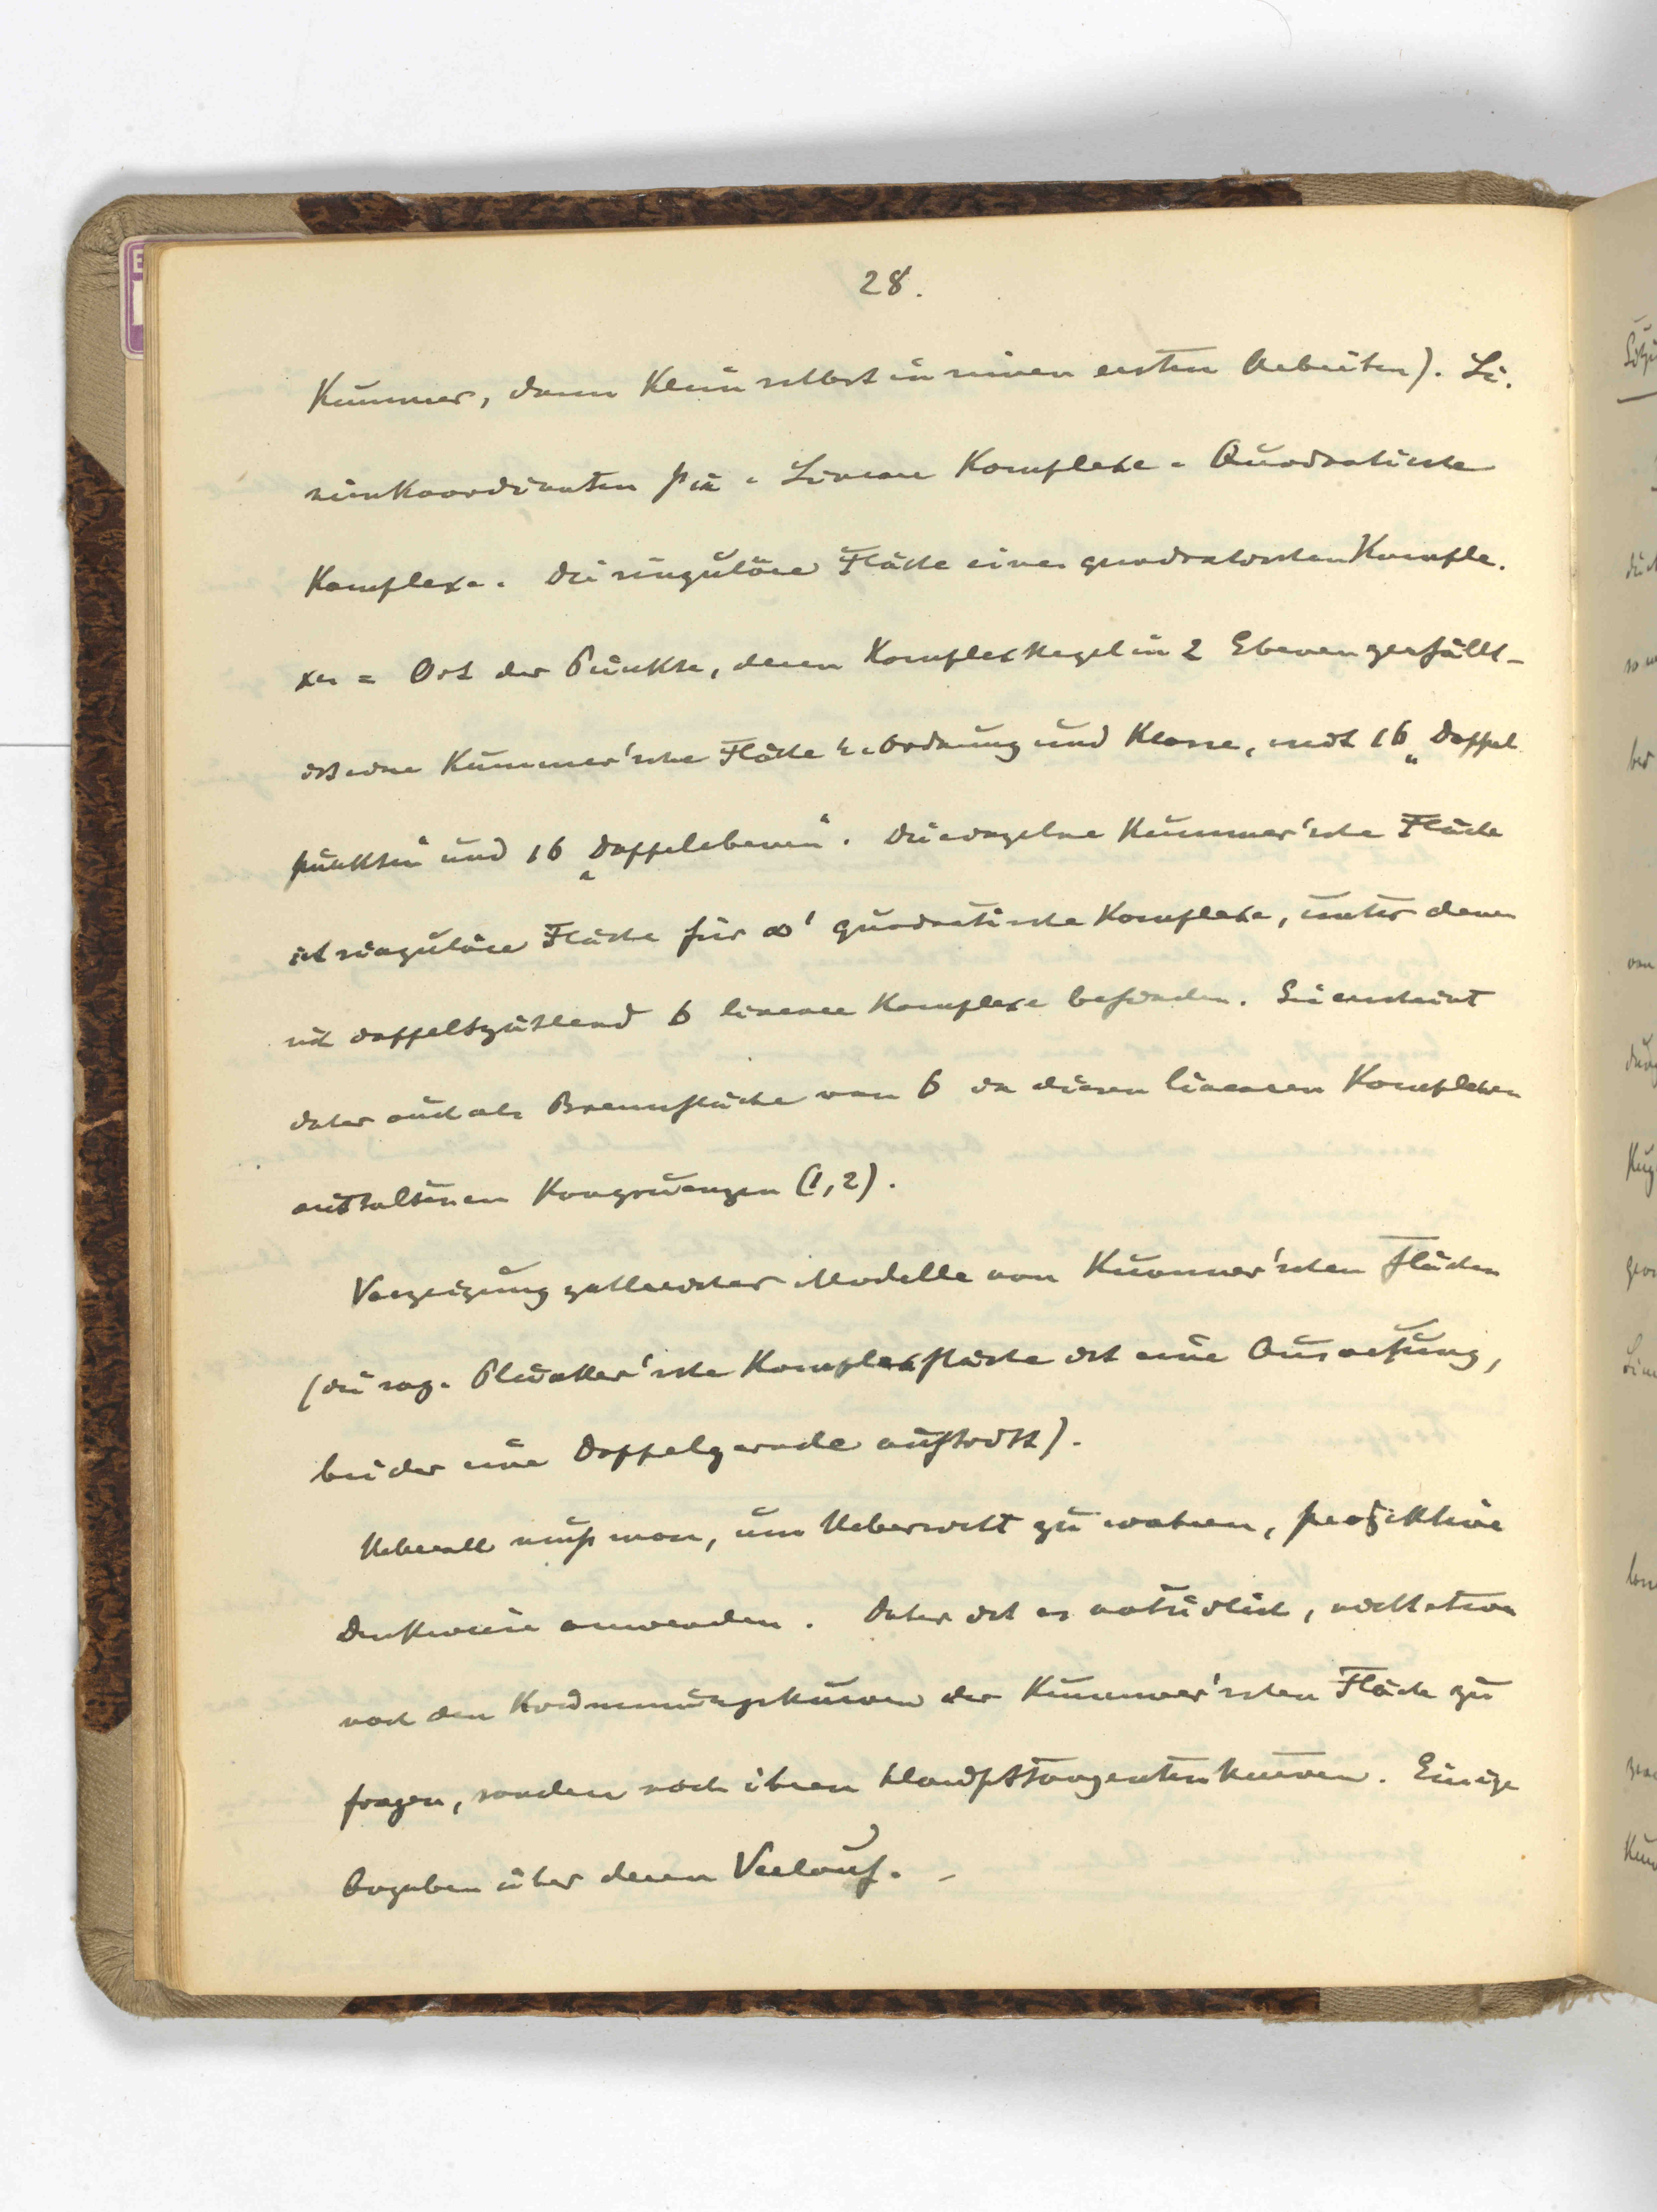 28.
Kummer, dann Klein selbst in seinen ersten Arbeiten). Li-
nienkoordinaten pik. Lineare Komplexe. Quadratische
Komplexe. Die singuläre Fläche eines quadratischen Komple-
xes = Ort der Punkte, deren Komplexkegel in 2 Ebenen zerfällt –
ist eine Kummer'sche Fläche 4. Ordnung und Klasse, mit 16 „Doppel
punkten“ und 16 „Doppelebenen“. Die einzelne Kummer'sche Fläche
ist singuläre Fläche für ∞¹ quadratische Komplexe, unter denen
sich doppeltzählend 6 lineare Komplexe befinden. Sie erscheint
daher auch als Brennfläche von 6 in diesen linearen Komplexen
enthaltenen Kongruenzen (1,2).
Vorzeigung zahlreicher Modelle von Kummer'schen Flächen
(die sog. Plücker'sche Komplexfläche ist eine Ausartung,
bei der eine Doppelgerade auftritt).
Ueberall muß man, um Uebersicht zu wahren, projektive
Denkweise anwenden. Daher ist es natürlich, nicht etwa
nach den Krümmungskurven der Kummer'schen Fläche zu
fragen, sondern nach ihren Haupttangentenkurven. Einige
Angaben über deren Verlauf. –